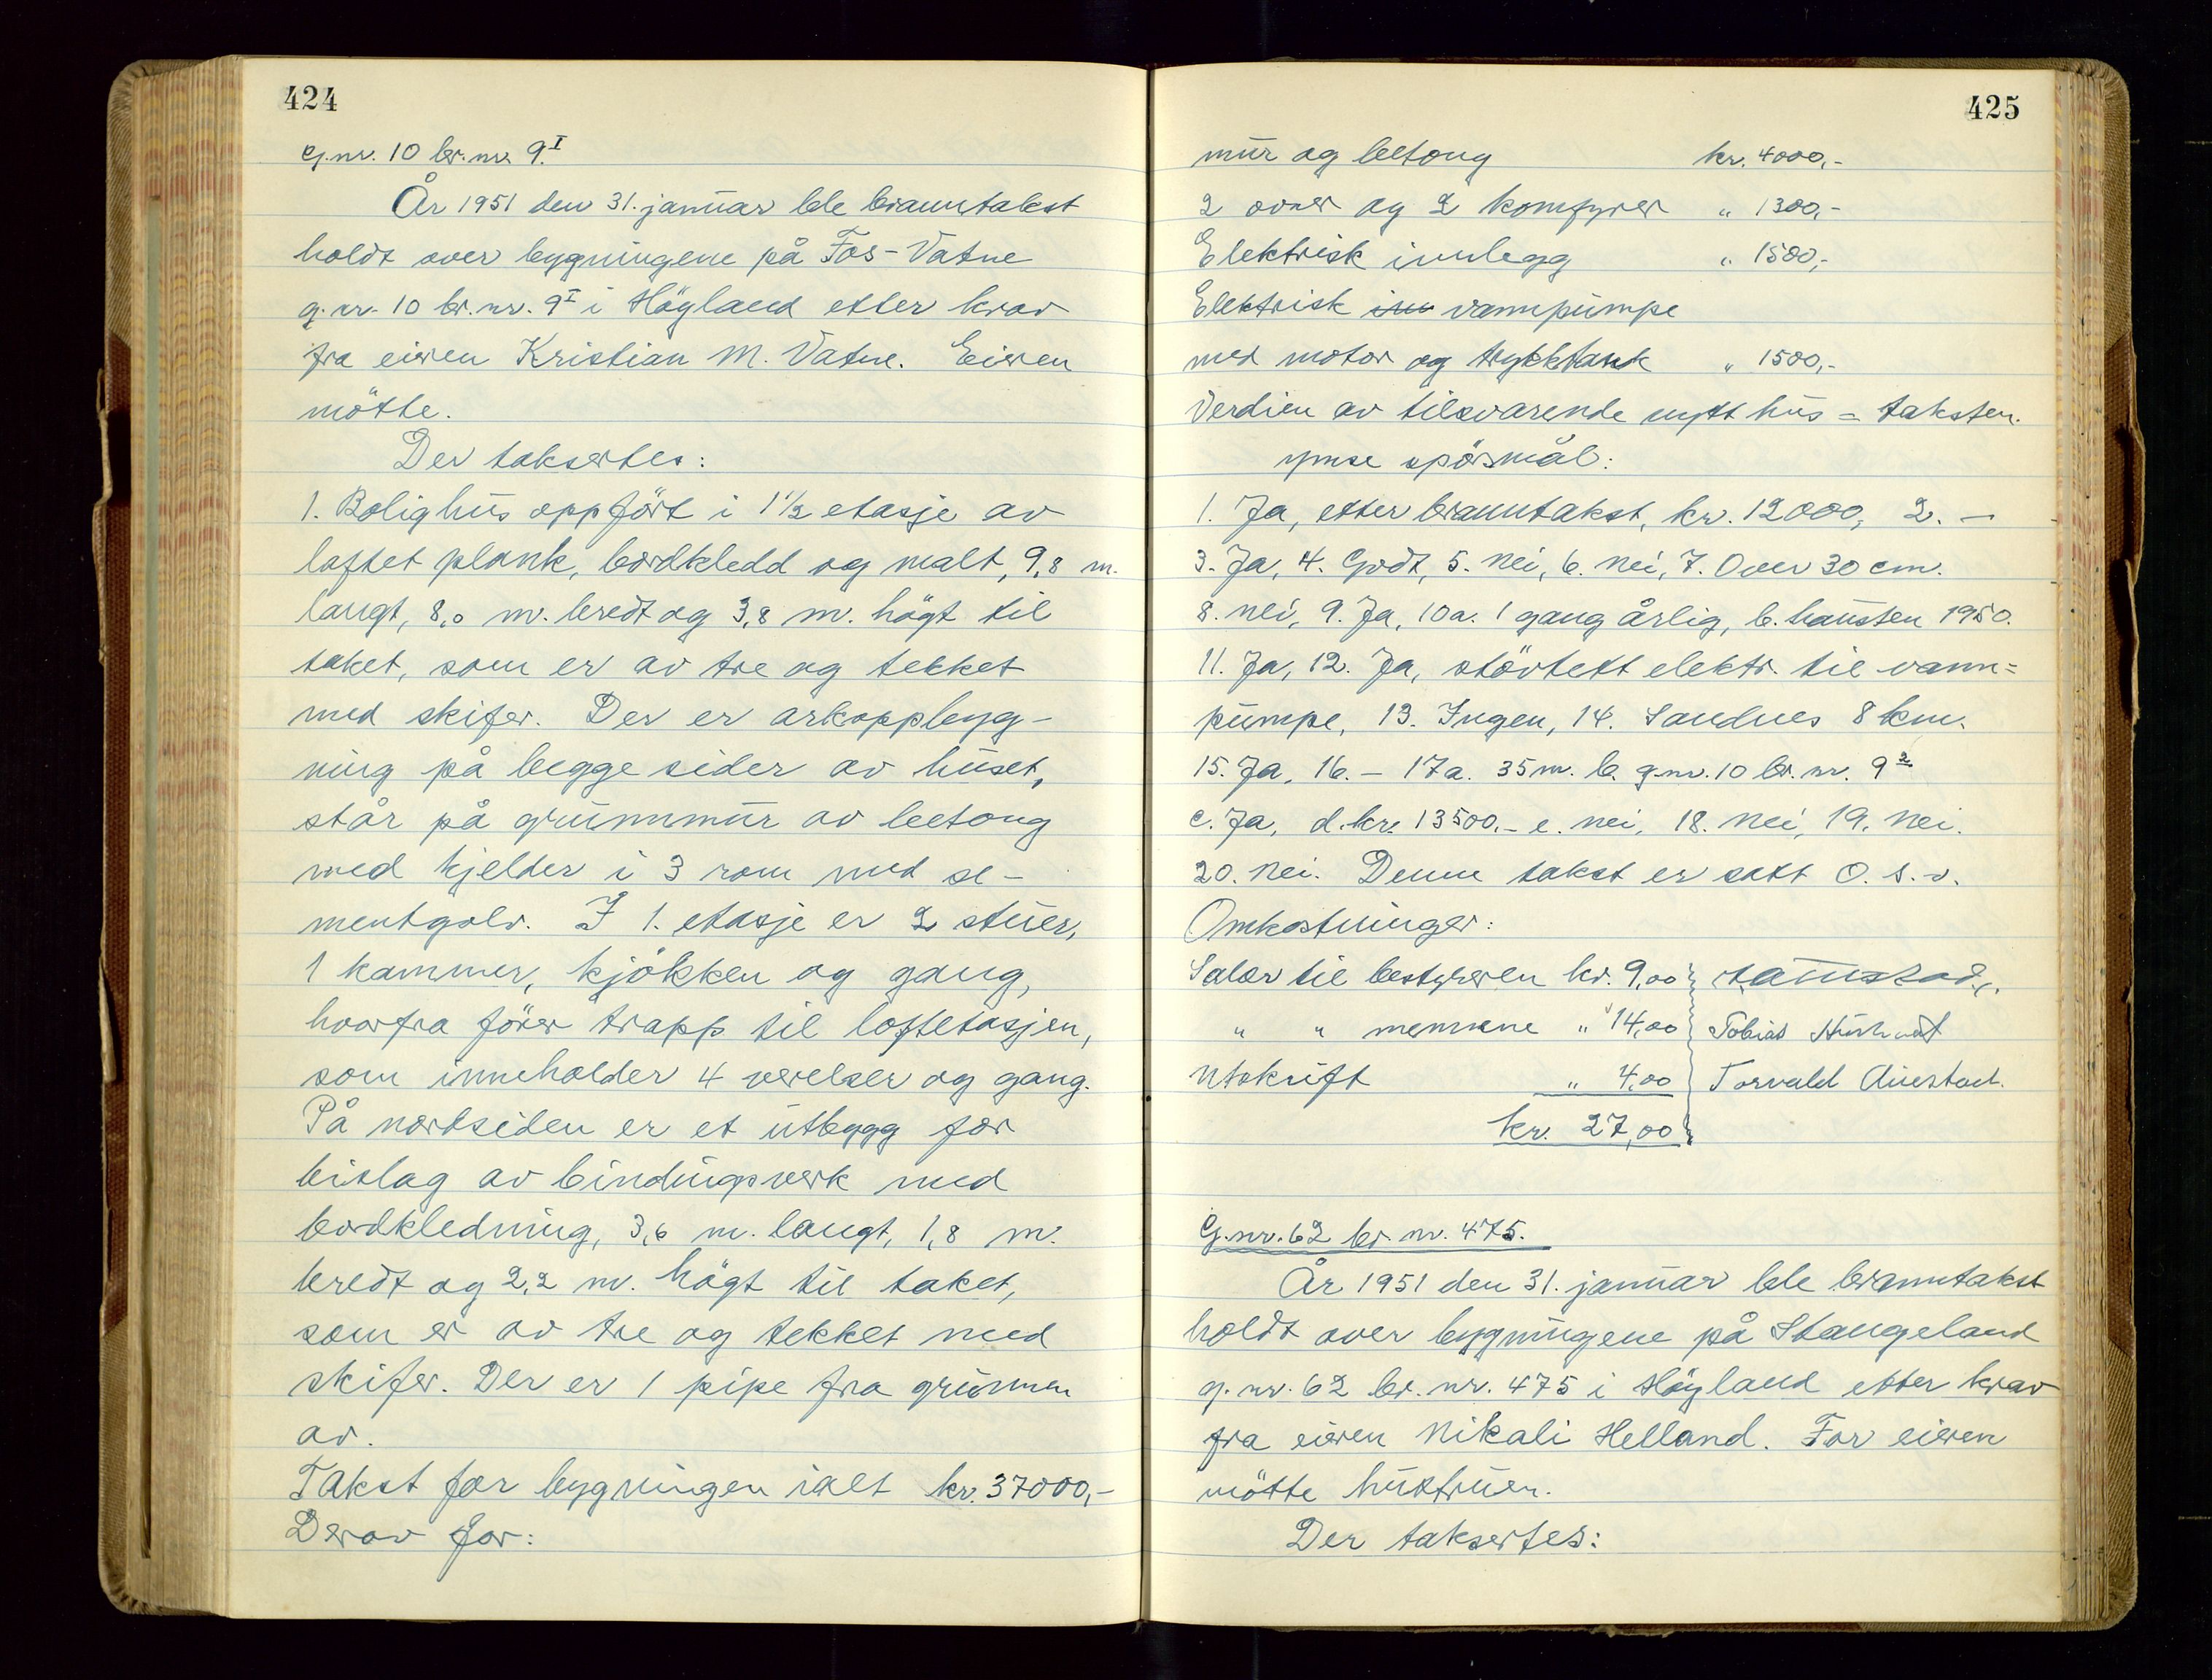 424
G.nr. 10 br.nr. 9.I
År 1951 den 31. januar ble branntakst
holdt over bygningene på Fos-Vatne
g.nr. 10 br.nr. 9I i Högland etter krav
fra eieren Kristian M. Vatne. Eieren
mötte.
Der taksertes:
1. Bolighus oppfört i 1 1/2 etasje av
laftet plank, bordkledd og malt, 9,8 m.
langt, 8,0 m. bredt og 3,8 m. högt til
taket, som er av tre og tekket
med skifer. Der er arkoppbyg-
ning på begge sider av huset,
står på grunnmur av betong
med kjelder i 3 rom med se-
mentgolv. I 1. etasje er 2 stuer,
1 kammer, kjökken og gang,
hvorfra förer trapp til loftetasjen,
som inneholder 4 verelser og gang.
På nordsiden er et utbygg for
bislag av bindingsverk med
bordkledning, 3,6 m. langt, 1,8 m.
bredt og 2,2 m. högt til taket,
som er av tre og tekket med
skifer. Der er 1 pipe fra grunnen
av.
Takst for bygningen ialt kr. 37000,-
Derav for:
425
mur og betong kr. 4000,-
2 ovner og 2 komfyrer " 1300,-
Elektrisk innlegg " 1500,-
Elektrisk inn vannpumpe
med motor og trykktank " 1500,-
Verdien av tilsvarende nytt hus = taksten.
ymse spörsmål:
1. Ja, etter branntakst, kr. 12000, 2. —
3. Ja, 4. Godt, 5. nei, 6. nei, 7. Over 30 cm.
8. nei, 9. Ja, 10a. 1 gang årlig, b. hausten 1950.
11. Ja, 12. Ja, stövtett elektr. til vann=
pumpe, 13. Ingen, 14. Sandnes 8 km.
15. Ja, 16. — 17a. 35 m. b. g.nr. 10 br. nr. 9 2
c. Ja, d. kr. 13500.- e. nei, 18. nei, 19. nei.
20. nei. Denne takst er satt O. s. v.
Omkostninger:
Salær til bestyreren kr. 9,00
" " mennene " 14,00 Tobias
Utskrift " 4,00 Torvald Auestad.
kr. 27,00
G.nr. 62 br. nr. 475.
År 1951 den 31. januar ble branntakst
holdt over bygningene på Stangeland
g. nr. 62 br. nr. 475 i Högland etter krav
fra eieren Nikali Helland. For eieren
mötte hustruen.
Der taksertes: